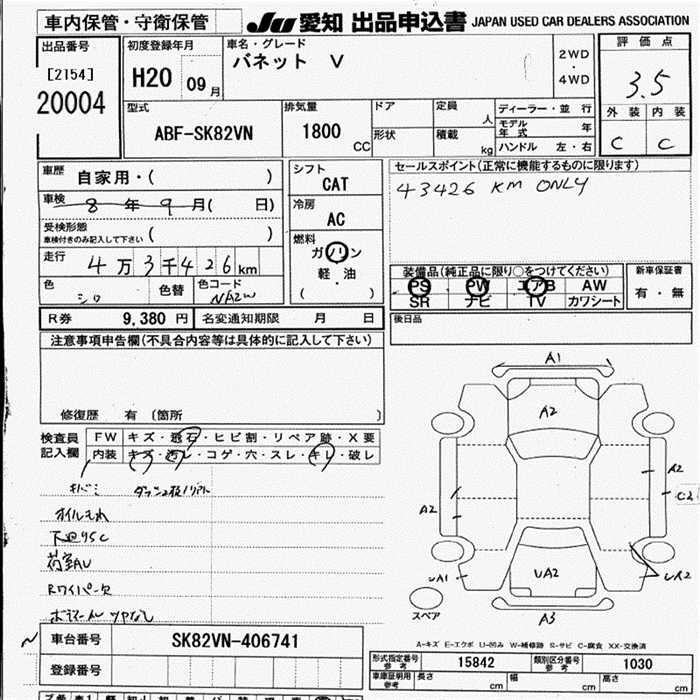 車内保管・守衛保管 JU 愛知 出品申込書 JAPAN USED CAR DEALERS ASSOCIATION
出品番号 初度登録年月 車名・グレード 評価点
[2154] H20 09月 バネット V 2WD・4WD 3.5
20004
型式 排気量 ドア 定員 人 ディーラー・並行 外装 内装
ABF-SK82VN 1800 CC 形状 積載 kg モデル年式 年 C C
ハンドル 左・右
車歴 自家用・( ) シフト CAT セールスポイント(正常に機能するものに限ります)
車検 8年9月( 日) 冷房 AC 43426 KM ONLY
受検形態 ( )
車検付きのみ記入して下さい
燃料 ガソリン 軽・油 ( ・ )
走行 4万3千426km
装備品(純正品に限り○をつけてください) 新車保証書
PS PW エアB AW 有・無
SR ナビ TV カワシート
色 シロ 色替 色コード NAZW
R券 9,380円 名変通知期限 月 日 後日品
注意事項申告欄(不具合内容等は具体的に記入して下さい)
修復歴 有 〔箇所 〕
検査員記入欄 FW キズ・飛石・ヒビ割・リペア跡・X要
内装 キズ・汚レ・コゲ・穴・スレ・キレ・破レ
オイルもれ
下廻りSC
荷室AU
Rワイパー欠
A1
A2
A2
A2
C2
UA1
UA2
UA2
スペア
A3
A-キズ E-エクボ U-凹み W-補修跡 S-サビ C-腐食 XX-交換済
車台番号 SK82VN-406741
登録番号
形式指定番号 参考 15842 類別区分番号 参考 1030
車庫証明用 参考 長さ cm 幅 cm 高さ cm